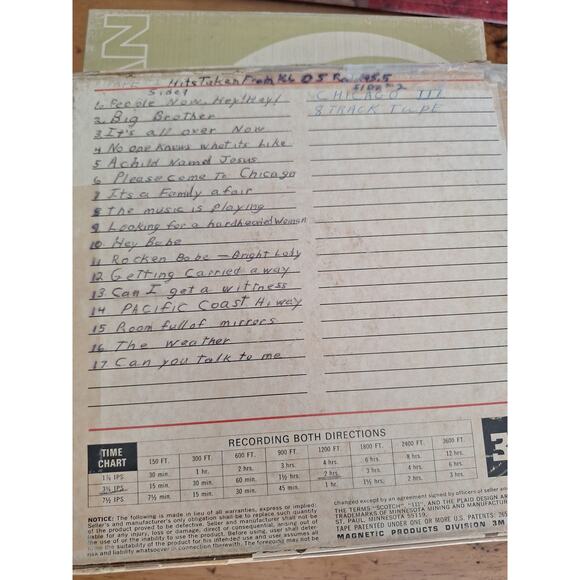 Hits Taken From KLOS Radio 95.5
Side 1
SIDE 2
1. People Now, Hey! Hey!
2. Big Brother
3. It's all over Now
4 No one knows what its Like
5 A child Named Jesus
6 Please come To Chicago
7 Its a Family afair
8 The music is playing
9 Looking for a hardheaded Woman
10 Hey Babe
11 Rocken Babe — Bright Lady
12 Getting Carried away
13 Can I get a wittness
14 PACIFIC COAST Hi way
15 Room full of mirrors
16 The weather
17 Can you talk to me
CHICAGO III
8 TRACK TAPE
RECORDING BOTH DIRECTIONS
TIME CHART 150 FT. 300 FT. 600 FT. 900 FT. 1200 FT. 1800 FT. 2400 FT. 3600 FT.
1⅞ IPS 30 min. 1 hr. 2 hrs. 3 hrs. 4 hrs. 6 hrs. 8 hrs. 12 hrs.
3¾ IPS 15 min. 30 min. 60 min. 1½ hrs. 2 hrs. 3 hrs. 4 hrs. 6 hrs.
7½ IPS 7½ min. 15 min. 30 min. 45 min. 1 hr. 1½ hrs. 2 hrs. 3 hrs.
NOTICE: The following is made in lieu of all warranties, express or implied:
Seller's and manufacturer's only obligation shall be to replace such quantity
of the product proved to be defective. Neither seller nor manufacturer shall be
liable for any injury, loss or damage, direct or consequential, arising out of
the use of or the inability to use the product. Before using, user shall deter-
mine the suitability of the product for his intended use and user assumes all
risk and liability whatsoever in connection therewith. The foregoing may not be
changed except by an agreement signed by officers of seller and
THE TERMS "SCOTCH", AND THE PLAID DESIGN AR
TRADEMARKS OF MINNESOTA MINING AND MANUFACTUR
ST. PAUL, MINNESOTA 55119.
TAPE PATENTED UNDER ONE OR MORE U.S. PATENTS: 265
MAGNETIC PRODUCTS DIVISION 3M